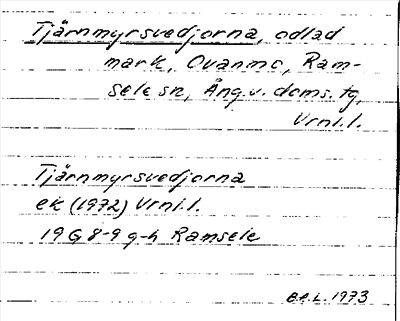 Tjärnmyrsvedjorna, odlad
mark, Ovanmo, Ram-
sele sn, Ång.v. doms. tg,
Vrnl.l.
Tjärnmyrsvedjorna
ek (1972) Vrnl.l.
19 G 8-9 g-h Ramsele
B.A.L. 1973